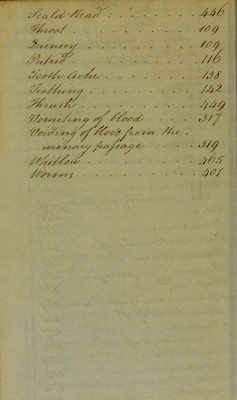 Scald Head . . . . . . . 446
Throat . . . . . . . . 109
Quinsey . . . . . . . . 109
Putrid . . . . . . . . 116
Tooth Ache . . . . . . . 138
Teething . . . . . . . 142
Thrush . . . . . . . . 449
Vomiting of blood . . . . 317
Voiding of blood from the
urinary passage . . . . 319
Whitlow . . . . . . . . 465
Worms . . . . . . . . 401